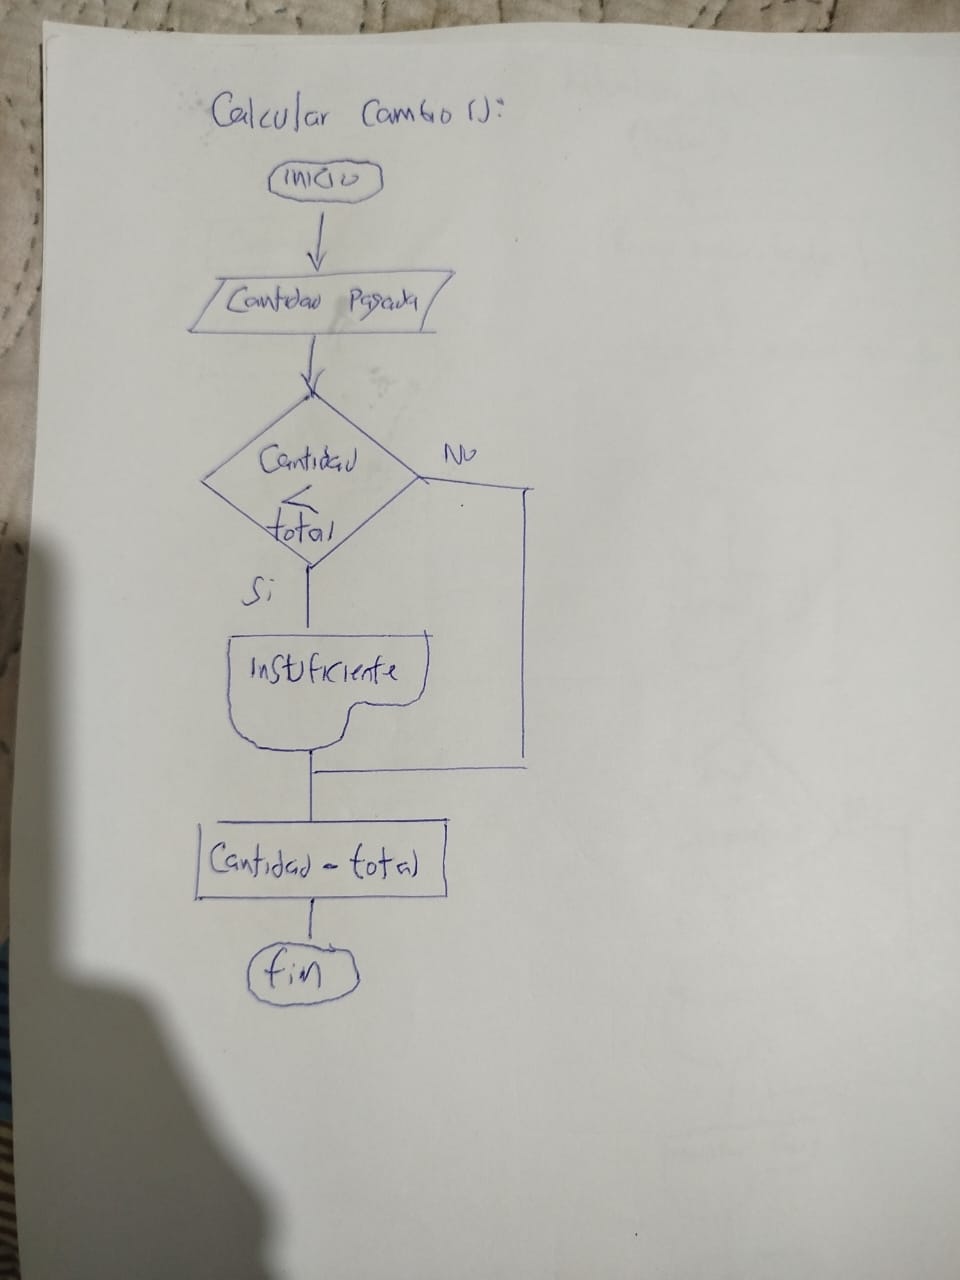 Calcular Cambio ():
inicio
Cantidad Pagada
Cantidad
<
total
No
Si
Insuficiente
Cantidad - total
fin